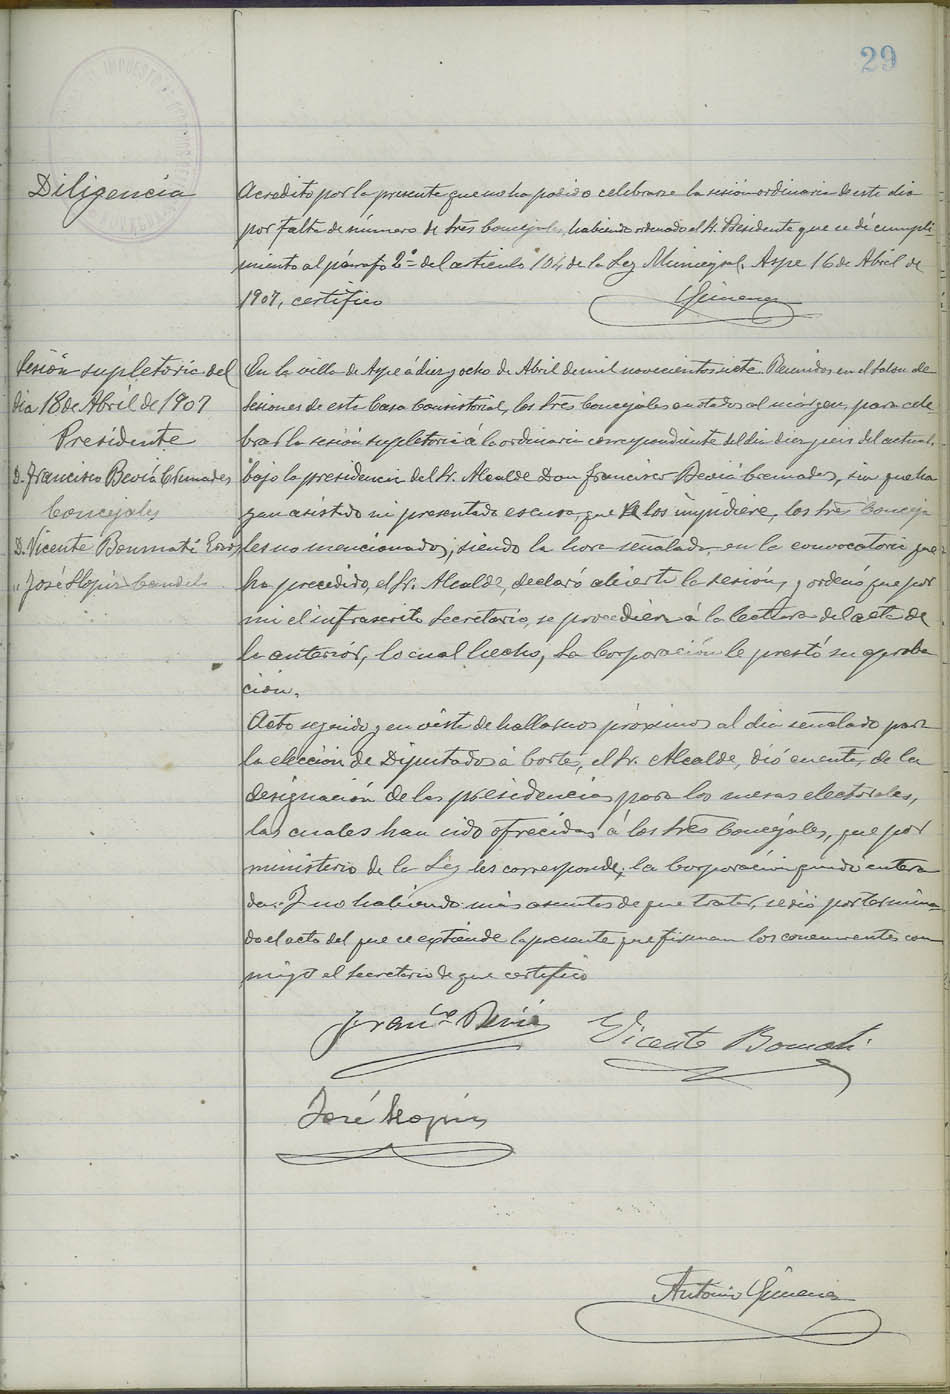 29
Diligencia
Acredito por la presente que no ha podido celebrarse la sesión ordinaria de este dia
por falta de número de tres Concejales, habiendo ordenado el Sr. Presidente que se dé cumpli-
miento al párrafo 2º del articulo 104 de la Ley Municipal. Aspe 16 de Abril de
1907, certifico
Gimenez
Sesión supletoria del
dia 18 de Abril de 1907
Presidente
D. Francisco Beviá Cremades
Concejales
D. Vicente Bonmati
" José Llopis Candela
En la villa de Aspe á diez y ocho de Abril de mil novecientos siete. Reunidos en el Salon de
Sesiones de esta Casa Consistorial, los tres Concejales anotados al márgen, para cele-
brar la sesión supletoria á la ordinaria correspondiente del dia diez y seis del actual.
bajo la presidencia del Sr. Alcalde Don Francisco Beviá Cremades, sin que ha
yan asistido ni presentado escusa, que los impidiere, los tres Conceja
les no mencionados; siendo la hora señalada en la convocatoria que
ha precedido, el Sr. Alcalde, declaró abierta la sesión, y ordenó que por
mi el infrascrito Secretario, se procediera á la lectura del acta de
la anteriór, lo cual hecho, la Corporación le prestó su aproba
ción.
Acto seguido y en vista de hallarnos próximos al dia señalado para
la elección de Diputados á Cortes, el Sr. Alcalde, dió cuenta, de la
designación de las presidencias para las mesas electorales,
las cuales han sido ofrecidas á los tres Concejales, que por
ministerio de la Ley les corresponde; la Corporación quedó entera
da. Y no habiendo más asuntos de que tratar, se dió por termina-
do el acto del que se extiende la presente que firman los concurrentes con
migo el Secretario de que certifico
Franco Beviá
Vicente Bonmati
José Llopis
Antonio Gimenez